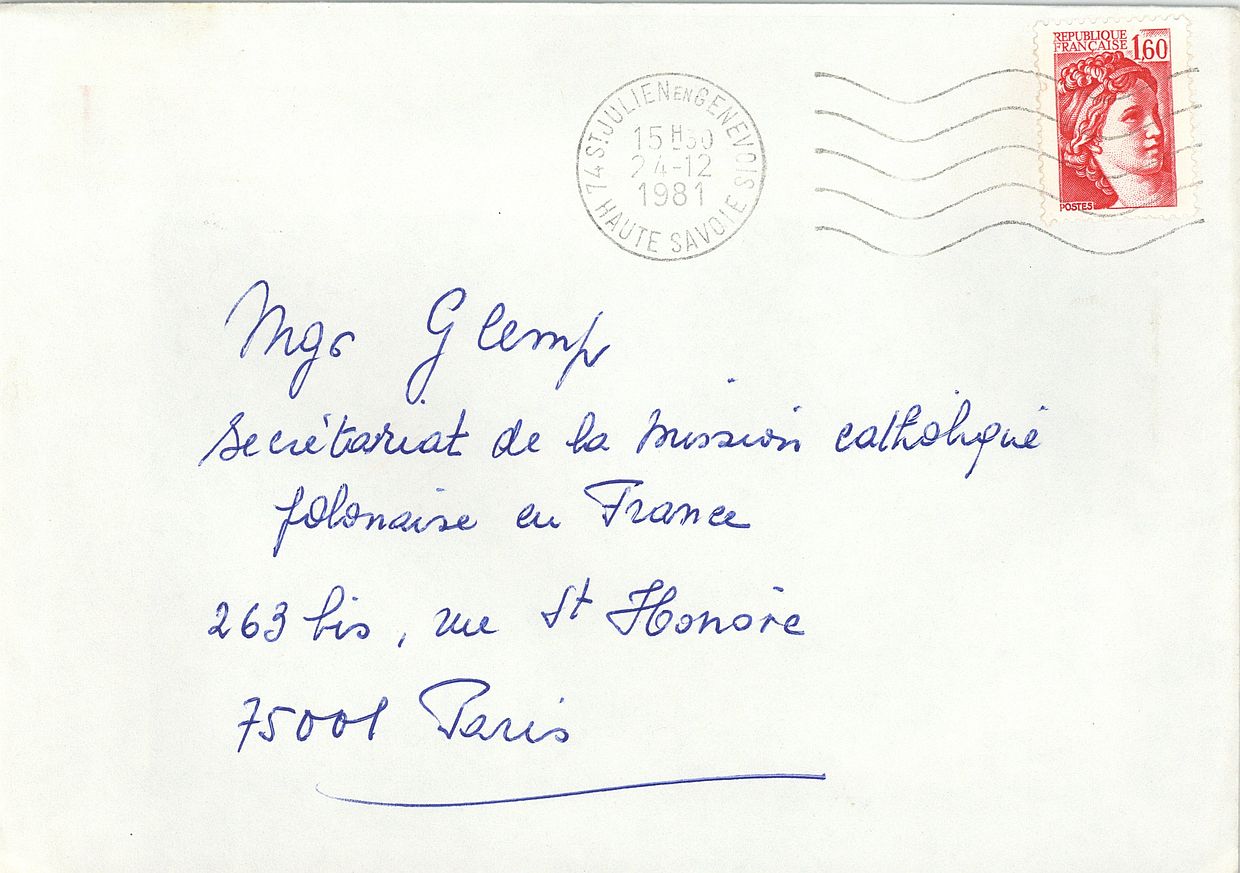 REPUBLIQUE
FRANÇAISE 1,60
POSTES
74 ST JULIEN EN GENEVOIS
15H30
24-12
1981
HAUTE SAVOIE
Mgr Glemp
Secrétariat de la mission catholique
polonaise en France
263 bis, rue St Honoré
75001 Paris